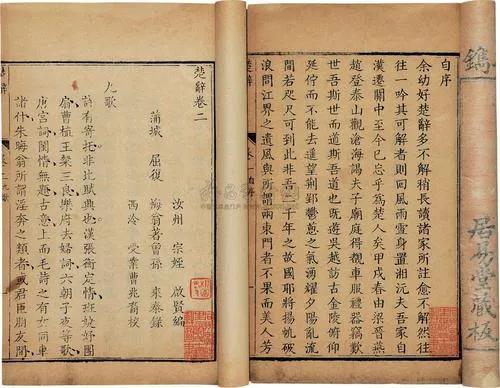 鐫
居易堂藏板
自序
余幼好楚辭多不解稍長讀諸家所註愈不解然往
往一吟其可解者則回風雨雪身置湘沅夫吾家自
漢遷關中至今已忘乎為楚人矣甲戌春由梁晉燕
趙登泰山觀滄海謁夫子廟庭得觀車服禮器竊歎
世吾斯世而道斯吾道也既還吳越訪古金陵俯仰
延佇而不能去遥望荆郢鬱愈之氣湧曜夕陽亂流
間若咫尺可到此非吾二千年之故國耶將揚帆破
浪問江界之遺風與所謂兩東門者不同而美人芳
楚辭
楚辭卷二
汝州 宗姪 啟賢編
蒲城 屈復 海翁著 曾孫 來泰錄
西泠 受業曹兆裔校
九歌
詩有寄托非比賦興也漢張衡定情班婕妤團
扇曹植王粲三良樂府去婦詞六朝子夜等歌
唐宮詞閨情無題古意上而毛詩之有女同車
諸什朱晦翁所謂淫奔之類者或君臣朋友間